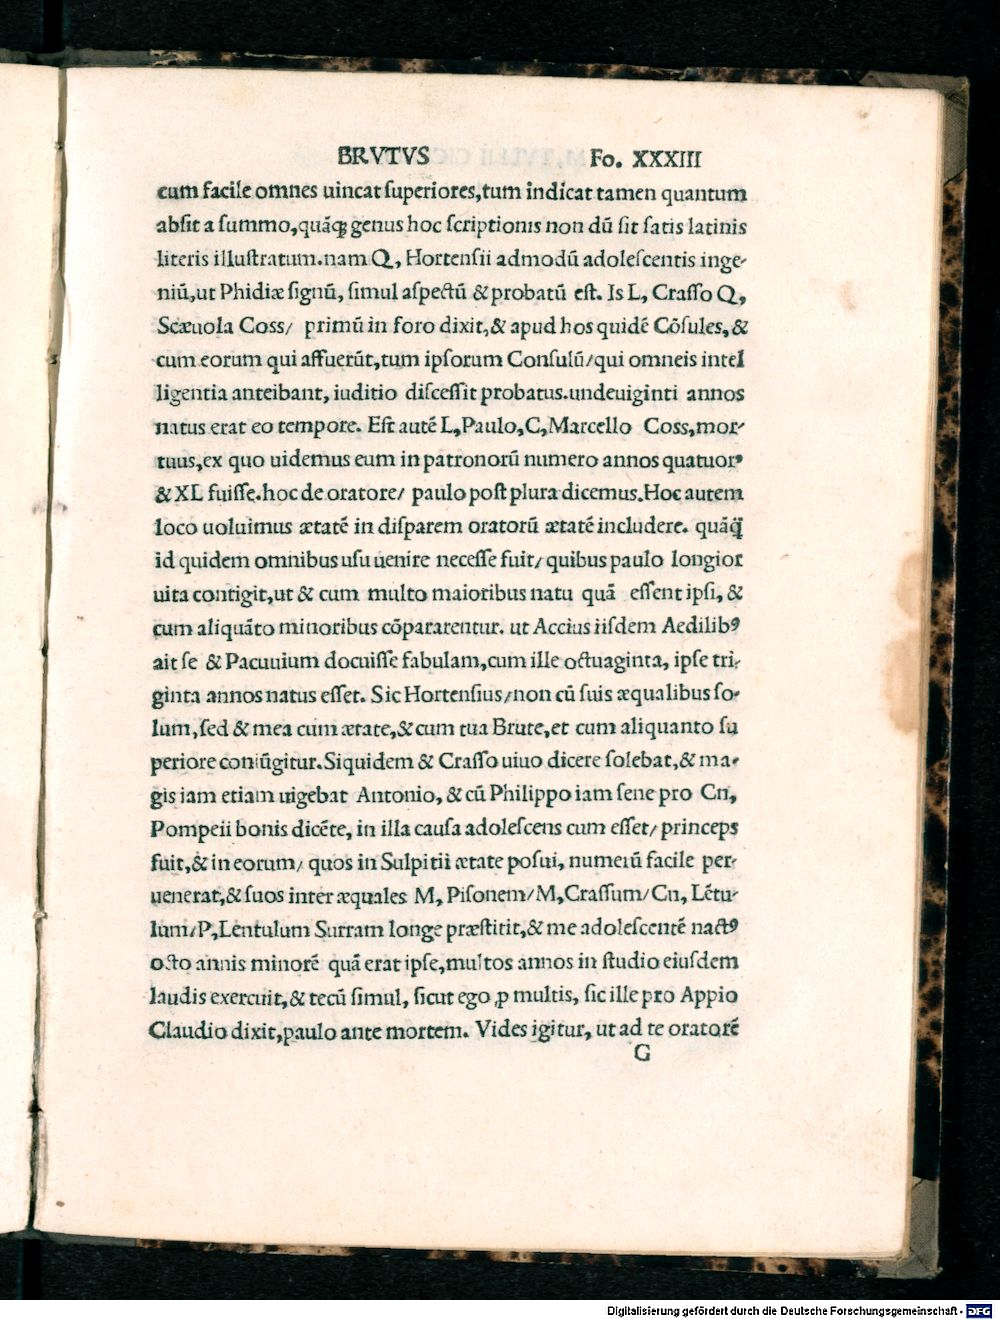 BRVTVS Fo. XXXIII
cum facile omnes uincat ſuperiores,tum indicat tamen quantum
abſit a ſummo,quãꝗ genus hoc ſcriptionis non dũ ſit ſatis latinis
literis illuſtratum.nam Q, Hortenſii admodũ adoleſcentis inge-
niũ,ut Phidiæ ſignũ, ſimul aſpectũ & probatũ eſt. Is L, Craſſo Q,
Scæuola Coss/ primũ in foro dixit,& apud hos quidẽ Cõſules,&
cum eorum qui affuerũt,tum ipſorum Conſulũ/qui omneis intel
ligentia anteibant, iuditio diſceſſit probatus.undeuiginti annos
natus erat eo tempore. Eſt autẽ L,Paulo,C,Marcello Coss,mor-
tuus,ex quo uidemus eum in patronorũ numero annos quatuor-
& XL fuiſſe.hoc de oratore/ paulo poſt plura dicemus.Hoc autem
loco uoluimus ætatẽ in diſparem oratorũ ætatẽ includere. quãꝗ̃
id quidem omnibus uſu uenire neceſſe fuit/ quibus paulo longior
uita contigit,ut & cum multo maioribus natu quã eſſent ipſi, &
cum aliquãto minoribus cõpararentur. ut Accius iiſdem Aedilibꝰ
ait ſe & Pacuuium docuiſſe fabulam,cum ille octuaginta, ipſe tri-
ginta annos natus eſſet. Sic Hortenſius/non cũ ſuis æqualibus ſo-
lum,ſed & mea cum ætate,& cum tua Brute,et cum aliquanto ſu
periore coniũgitur.Siquidem & Craſſo uiuo dicere ſolebat,& ma-
gis iam etiam uigebat Antonio, & cũ Philippo iam ſene pro Cn,
Pompeii bonis dicẽte, in illa cauſa adoleſcens cum eſſet/ princeps
fuit,& in eorum/ quos in Sulpitii ætate poſui, numerũ facile per-
uenerat,& ſuos inter æquales M, Piſonem/M,Craſſum/Cn, Lẽtu-
lum/P,Lentulum Surram longe præſtitit,& me adoleſcentẽ nactꝰ
octo annis minorẽ quã erat ipſe,multos annos in ſtudio eiuſdem
laudis exercuit,& tecũ ſimul, ſicut ego ꝓ multis, ſic ille pro Appio
Claudio dixit,paulo ante mortem. Vides igitur, ut ad te oratorẽ
G
Digitalisierung gefördert durch die Deutsche Forschungsgemeinschaft - DFG